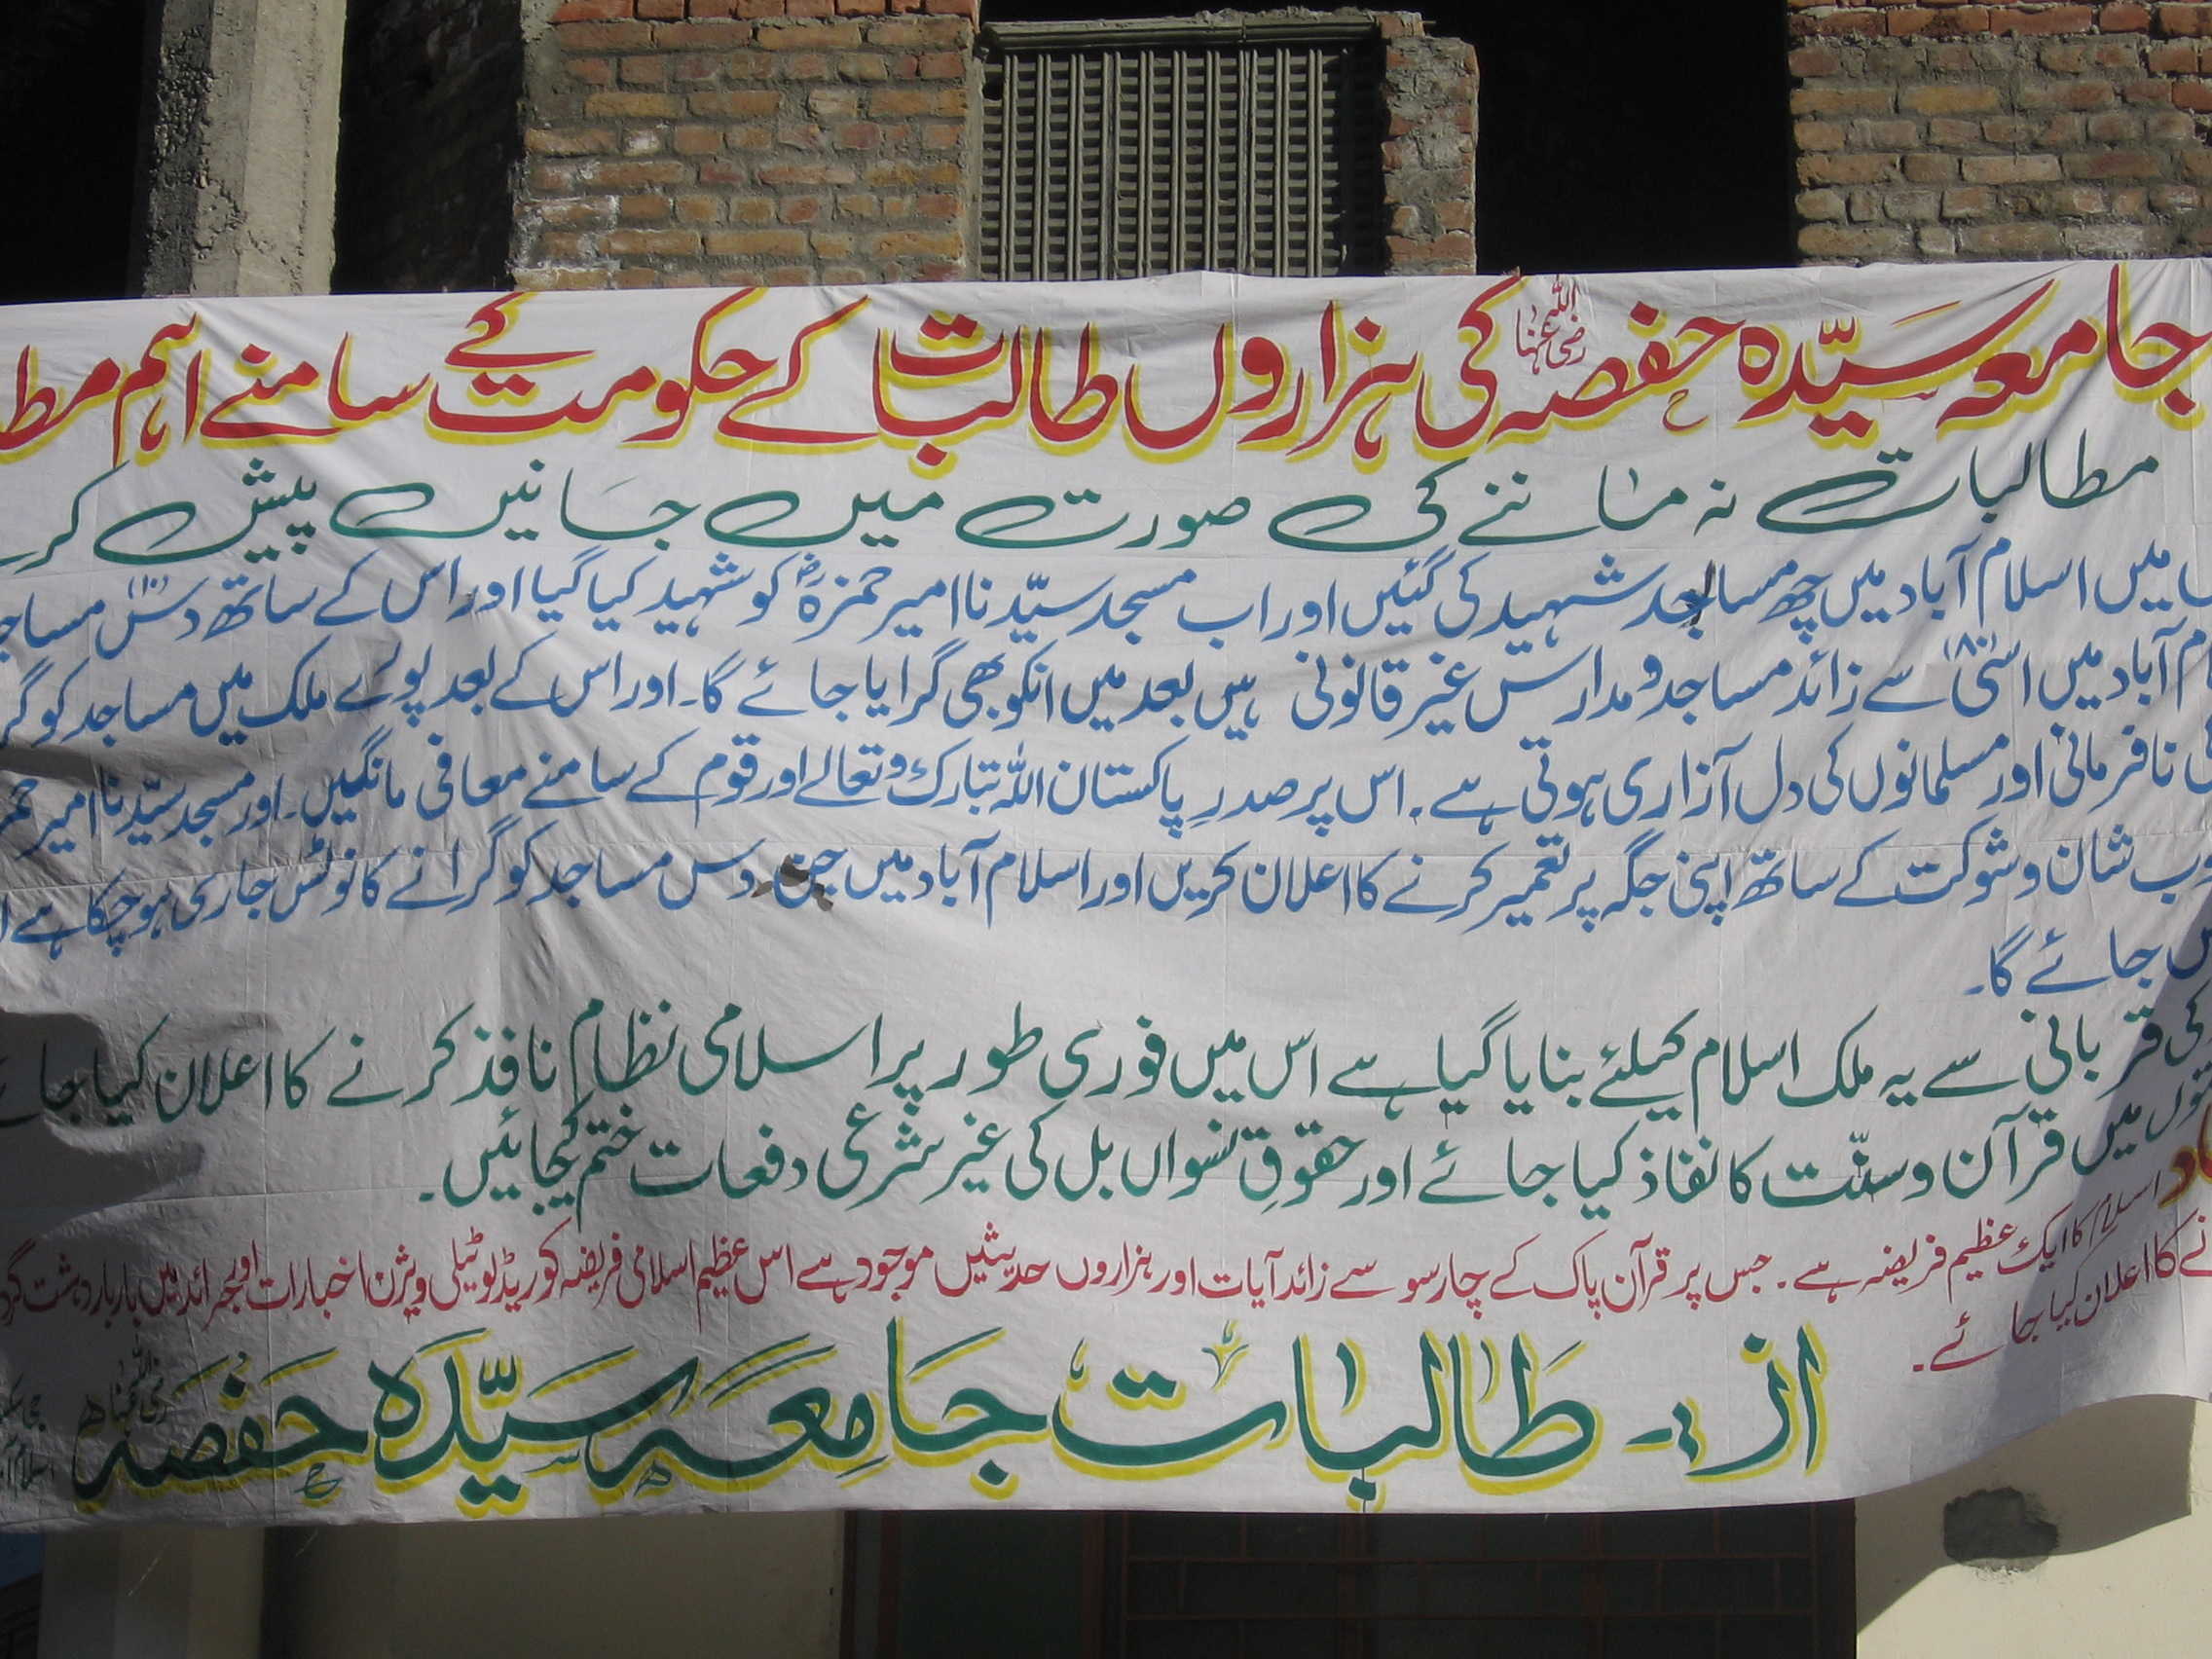 جامعہ سیّدہ حفصہ رضی اللہ عنہا کی ہزاروں طالبات کے حکومت کے سامنے اہم
مطالبات نہ ماننے کی صورت میں جانیں پیش
میں اسلام آباد میں چھ مساجد شہید کی گئیں اور اب مسجد سیّدنا امیر حمزہؓ کو شہید کیا گیا اور اس کے ساتھ دس (۱۰)
آباد میں اسّی (۸۰) سے زائد مساجد و مدارس غیر قانونی ہیں بعد میں انکو بھی گرایا جائے گا۔ اور اس کے بعد پورے ملک میں مساجد کو
نافرمانی اور مسلمانوں کی دل آزاری ہوتی ہے۔ اس پر صدرِ پاکستان اللہ تبارک وتعالےٰ اور قوم کے سامنے معافی مانگیں۔ اور مسجد سیّدنا امیر
شان و شوکت کے ساتھ اپنی جگہ پر تعمیر کرنے کا اعلان کریں اور اسلام آباد میں جن دس مساجد کو گرانے کا نوٹس جاری ہوچکا ہے
جائے گا۔
کی قربانی سے یہ ملک اسلام کیلئے بنایا گیا ہے اس میں فوری طور پر اسلامی نظام نافذ کرنے کا اعلان کیا
میں قرآن و سنّت کا نفاذ کیا جائے اور حقوقِ نسواں بل کی غیر شرعی دفعات ختم کیجائیں۔
اسلام کا ایک عظیم فریضہ ہے۔ جس پر قرآن پاک کے چار سو سے زائد آیات اور ہزاروں حدیثیں موجود ہے اس عظیم اسلامی فریضہ کو ریڈیو ٹیلی ویژن اخبارات اور جرائد میں بار بار دہشت
کا اعلان کیا جائے۔
از۔ طالبات جامعہ سیّدہ حفصہ رضی اللہ عنہا